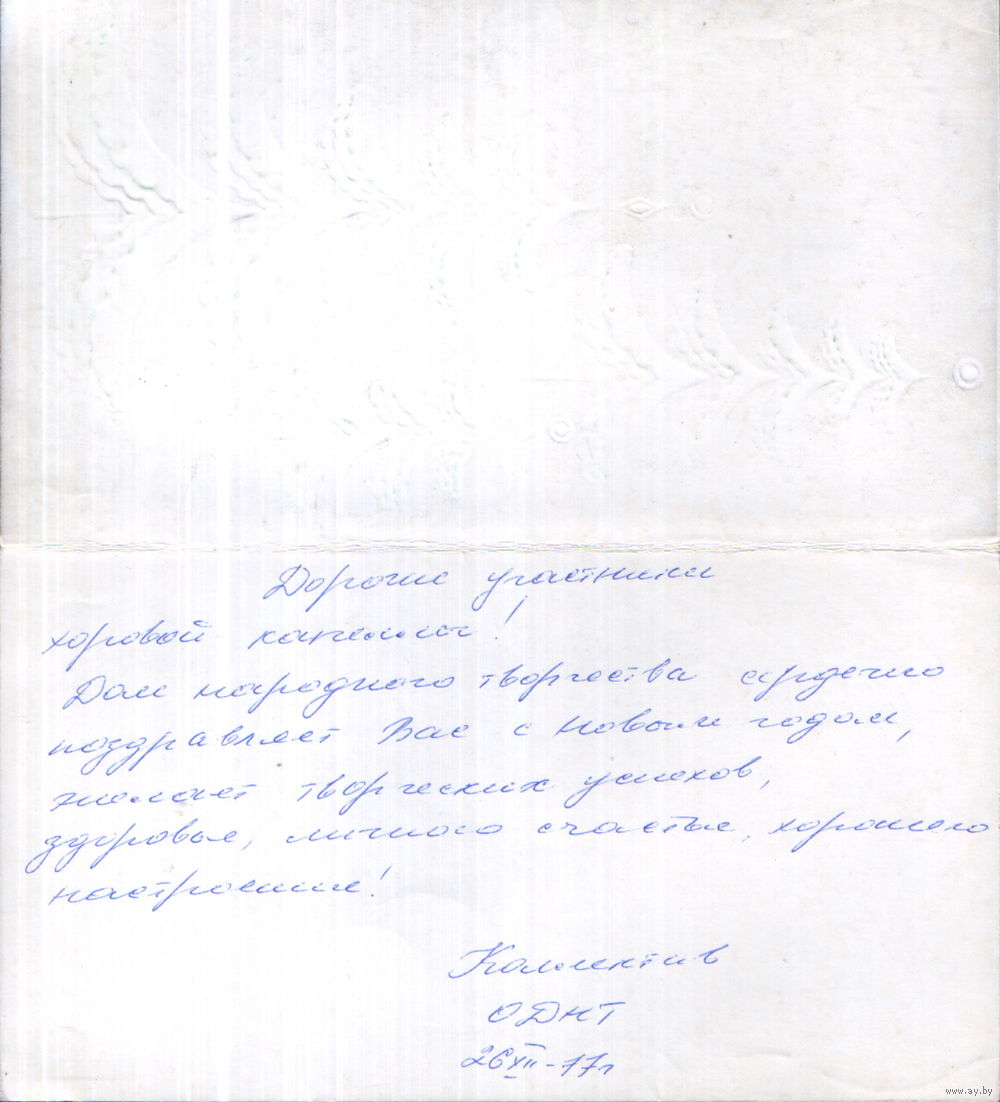 Дорогие участники
хоровой капеллы!
Дом народного творчества сердечно
поздравляет Вас с Новым годом,
желает творческих успехов,
здоровья, личного счастья, хорошего
настроения!
Коллектив
ОДНТ
26 XII - 77 г
www.ay.by